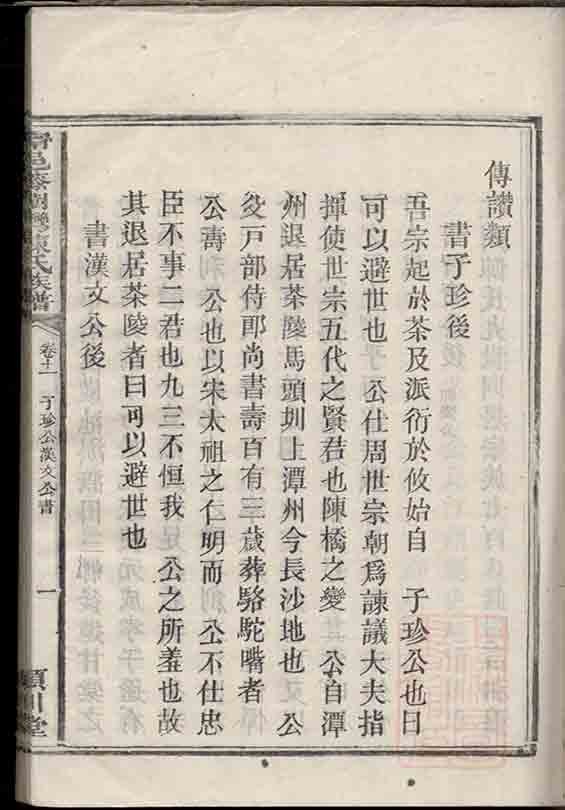 傳讚類
書子珍後
吾宗起於茶及派衍於攸始自 子珍公也曰
可以避世也 公仕周世宗朝爲諫議大夫指
揮使世宗五代之賢君也陳橋之變 公自潭
州退居茶陵馬頭圳上潭州今長沙地也 公
癹戸部侍郎尚書壽百有三歲葬駱駝嘴者
公壽 公也以宋太祖之仁明而 公不仕忠
臣不事二君也九三不恒我 公之所羞也故
其退居茶陵者曰可以避世也
書漢文公後
陳氏族譜
卷十一
子珍公漢文公書
一
潁川堂